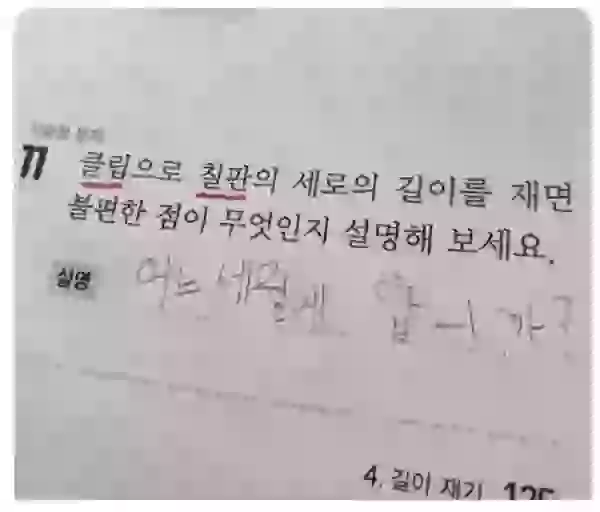 11 클립으로 칠판의 세로의 길이를 재면
불편한 점이 무엇인지 설명해 보세요.
설명 어느세월에 합니까?
4. 길이 재기 125